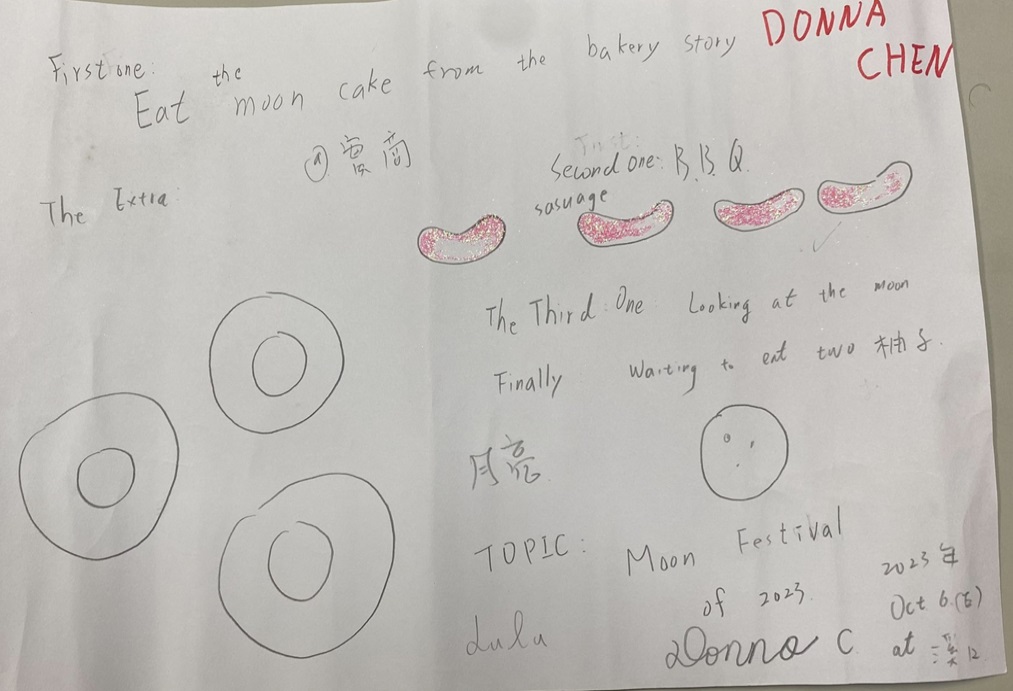 DONNA
CHEN
First one: the
Eat moon cake from the bakery story
The Extra
Second one: B.B.Q.
sasuage
The Third One Looking at the moon
Finally Waiting to eat two 柚子.
月亮
TOPIC: Moon Festival
of 2023.
Lulu
Donna C.
2023年
Oct 6 (五)
at